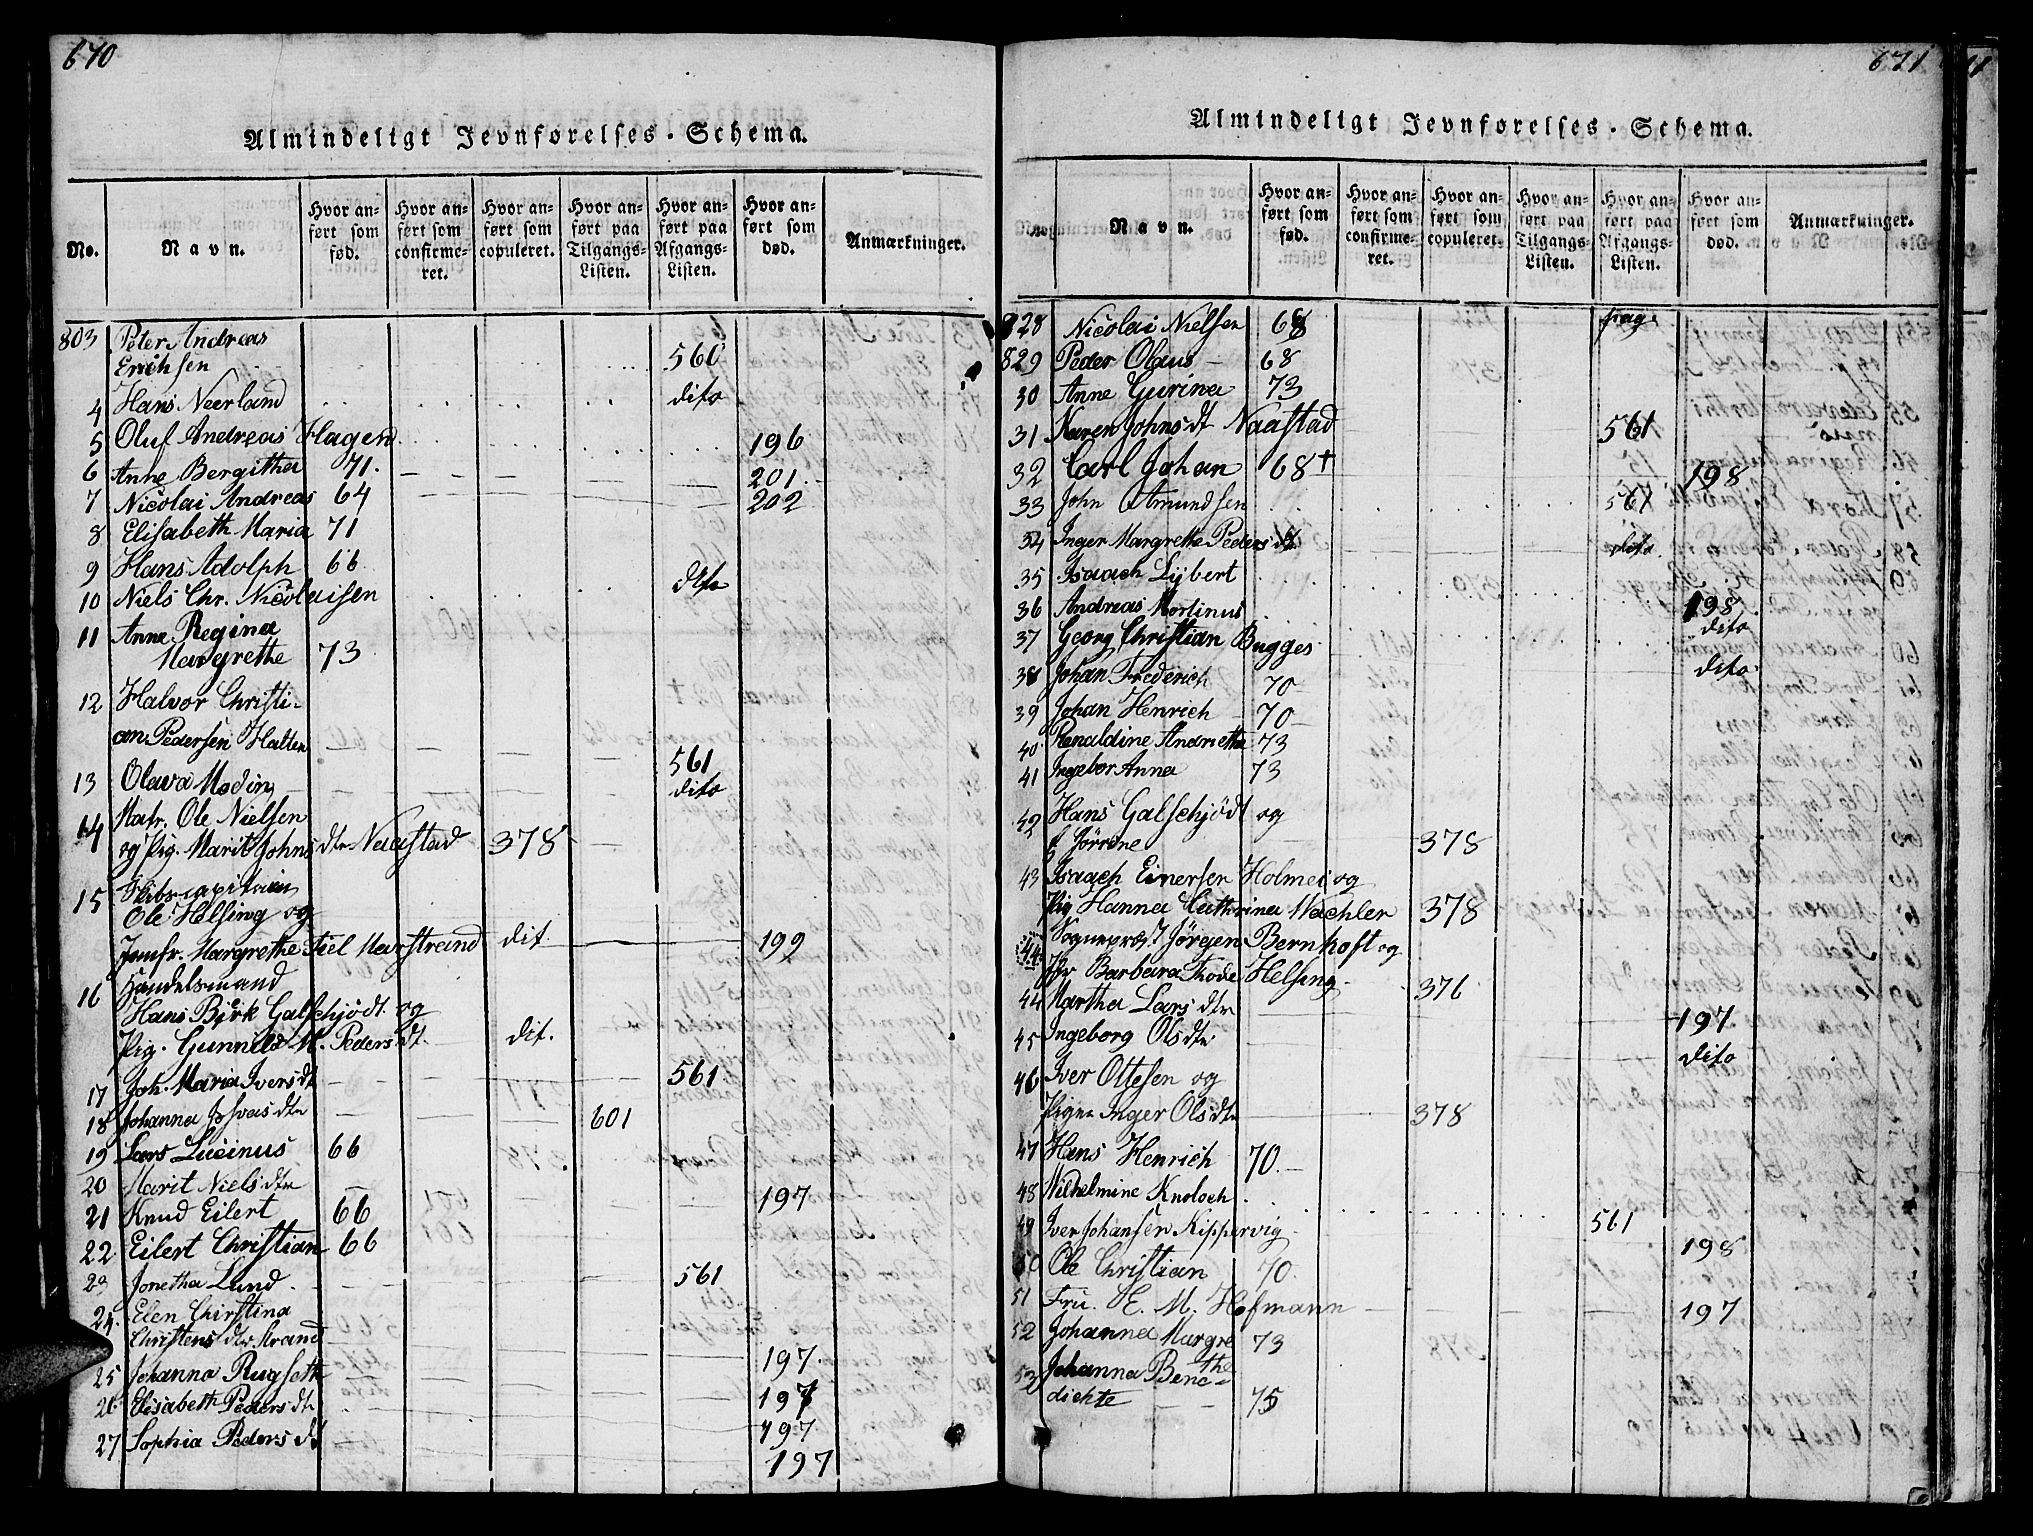 670
Almindeligt Jevnførelses-Schema.
No. Navn. Hvor anført som fød. Hvor anført som confirmeret. Hvor anført som copuleret. Hvor anført paa Tilgangs-Listen. Hvor anført paa Afgangs-Listen. Hvor anført som død. Anmærkninger.
803 Peter Andreas
Erichsen 560
4 Hans Neerland dito
5 Oluf Andreas Hagen 196
6 Anne Bergitha 71. 201
7 Nicolai Andreas 64 202
8 Elisabeth Maria 71
9 Hans Adolph 66
10 Niels Chr. Nicolaisen dito
11 Anne Regina
Margrethe 73
12 Halvor Christi-
an Pedersen Halten 561
13 Olava Modin dito
14 Matr. Ole Nielsen
og Pig. Marit Johnsdtr Naastad 378
15 Skibscapitain
Ole Helsing og
Jomfr. Margrethe Fiel Marstrand dit. 199
16 Handelsmand
Hans Birk Galschjödt og
Pig. Gunnild M. Pedersdt. dit.
17 Joh. Maria Iversdt 561
18 Johanna dtr 601
19 Lars Lucinus 66
20 Marit Nielsdtr 197
21 Knud Eilert 66
22 Eilert Christian 66
23 Jonetha Lund 561
24. Elen Christina
Christensdtr Strand 197.
25 Johanna Rugseth 197
26 Elisabeth Pedersdt 197
27 Sophia Pedersdt 197
671
Almindeligt Jevnførelses-Schema.
Navn. Hvor anført som fød. Hvor anført som confirmeret. Hvor anført som copuleret. Hvor anført paa Tilgangs-Listen. Hvor anført paa Afgangs-Listen. Hvor anført som død. Anmærkninger.
828 Nicolai Nielsen 68 pag.
829 Peder Olaus 68
30 Anne Gurina 73
31 Karen Johnsdt Naastad 561
32 Carl Johan 68† 198
33 John Amundsen 561
34 Inger Margrethe Pedersdt dito
35 Isaach Lybert
36 Andreas Mortinus 198
37 Georg Christian Bugges dito
38 Johan Frederich 70 dito
39 Johan Henrich 70
40 Renaldine Andrietha 73
41 Ingebor Anna 73
42 Hans Galschjödt og
Jörrine 378
43 Isaach Einersen Holmei og
Pig Hanna Cathrina Wachler 378
44 Sognepræst Jörgen Bernhoft og
Jfr Barbara Trode Helsing 376
44 Martha Larsdtr 197
45 Ingeborg Olsdtr dito
46 Iver Ottesen og
Pigen Inger Olsdtr 378
47 Hans Henrich 70.
48 Wilhelmine Knoloch 561
49 Iver Johansen Kippervig 198
50 Ole Christian 70.
51 Fru. E. M. Hofmann 197
52 Johanna Margre
the 73
53 Johanna Bene-
dichte 75